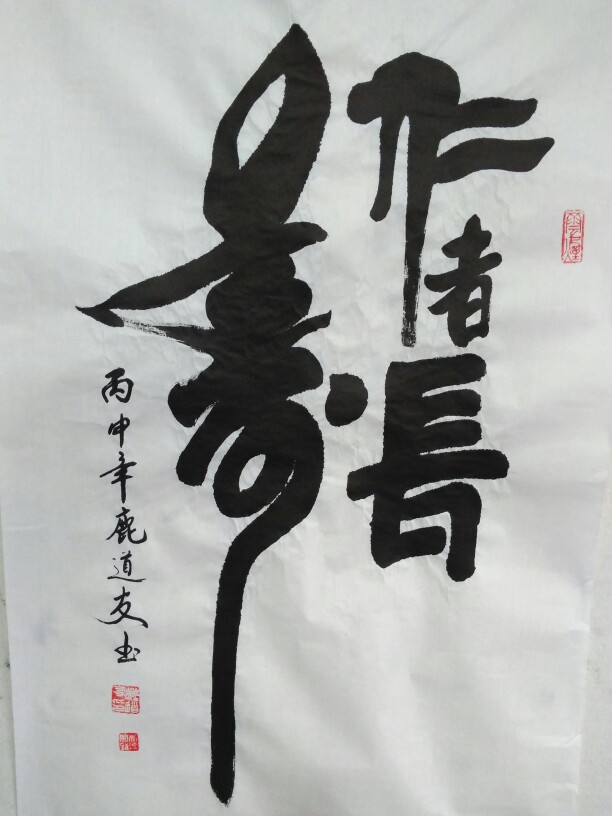 仁者長
壽
丙申年鹿道友书